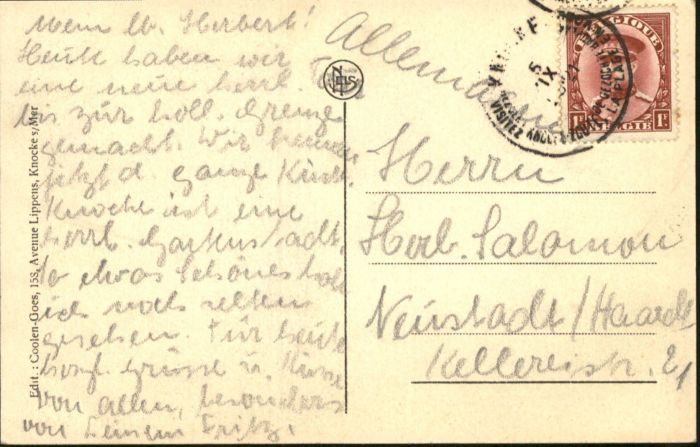 Mein lb. Herbert!
Heute haben wir
eine neue herrl. Tour
bis zur holl. Grenze
gemacht. Wir kennen
jetzt d. ganze Küste.
Knocke ist eine
herrl. Gartenstadt,
so etwas Schönes hab
ich noch selten
gesehen. Für heute
herzl. Grüsse u. Küsse
von allen, besonders
von Deinem Fritz.
Edit.: Coolen-Goes, 158, Avenue Lippens, Knocke s/Mer
Allemagne
BELGIQUE
1F
1F
BELGIE
5
IX
Herrn
Herb. Salomon
Neustadt/Haardt
Kellereistr. 21